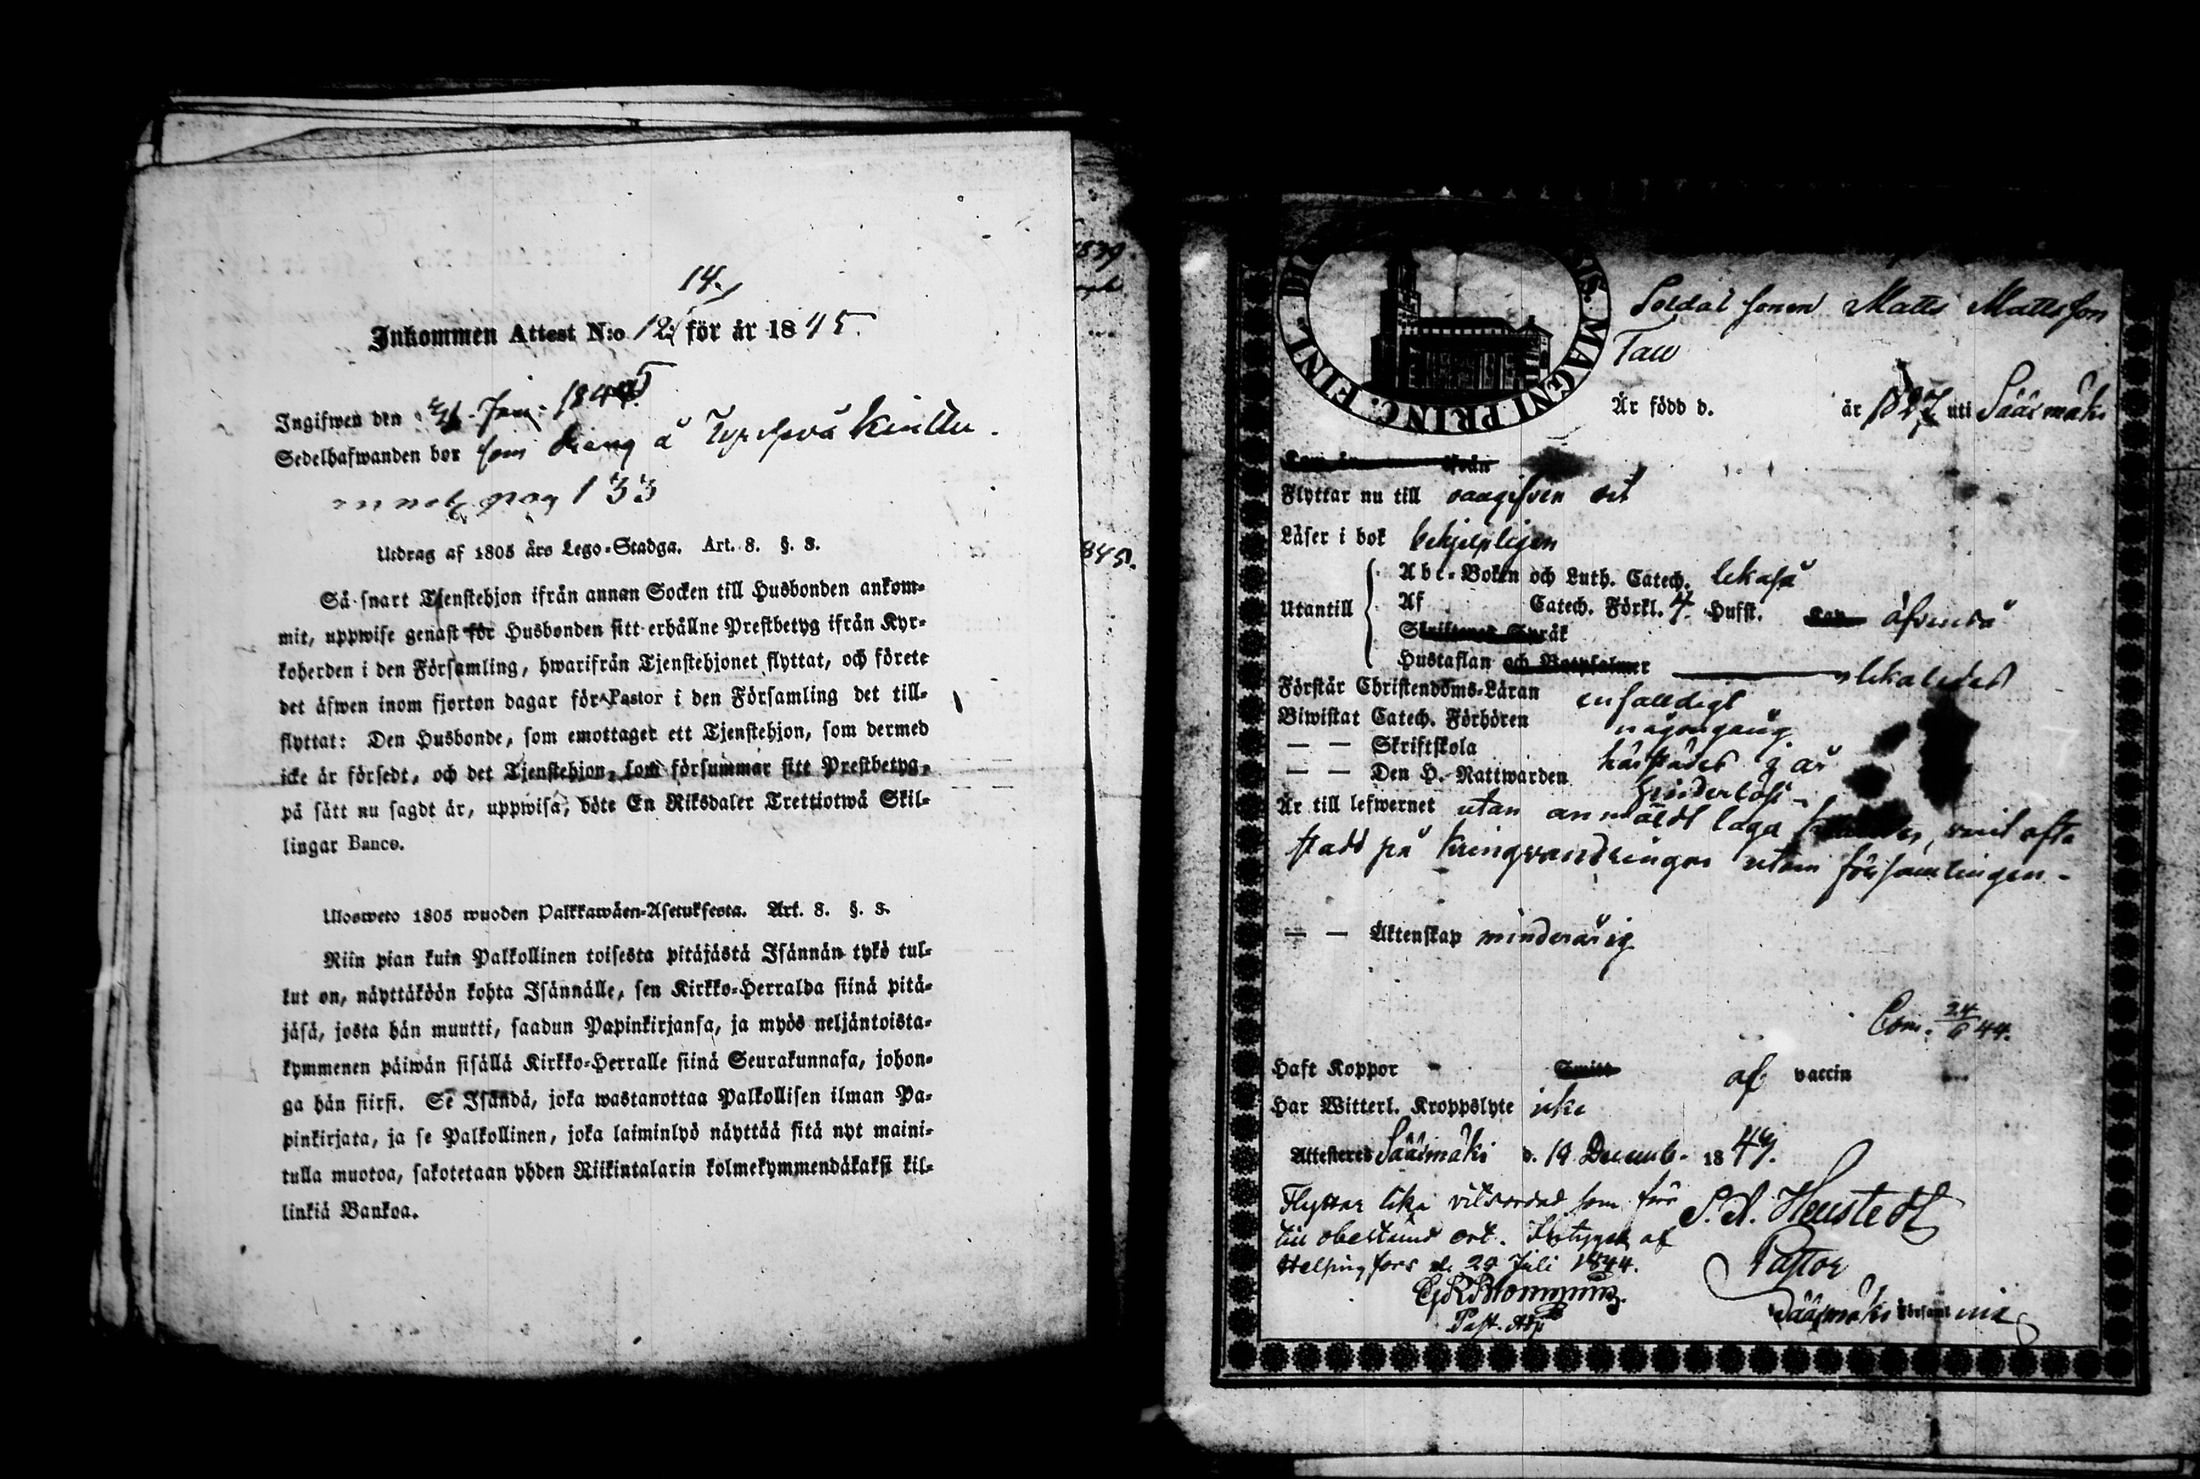 14.
Inkommen Attest N:o 12 för år 1845.
Ingifwen den Jan. 1845
Sedelhafwanden bor som dräng å
pag 133
Utdrag af 1805 års Lego-Stadga. Art. 8. §. 3.
Så snart Tjenstehjon ifrån annan Socken till Husbonden ankom-
mit, uppwise genast för Husbonden sitt erhållne Prestbetyg ifrån Kyr-
koherden i den Församling, hwarifrån Tjenstehjonet flyttat, och förete
det äfwen inom fjorton dagar för Pastor i den Församling det till-
flyttat: Den Husbonde, som emottager ett Tjenstehjon, som dermed
icke är försedt, och det Tjenstehjon, som försummar sitt Prestbetyg,
på sätt nu sagdt är, uppwisa, böte En Riksdaler Trettiotwå Skil-
lingar Banco.
Ulosweto 1805 wuoden Palkkawäen-Asetuksesta. Art. 8. §. 3.
Niin pian kuin Palkollinen toisesta pitäjästä Isännän tykö tul-
lut on, näyttäköön kohta Isännälle, sen Kirkko-Herralda siinä pitä-
jäsä, josta hän muutti, saadun Papinkirjansa, ja myös neljäntoista-
kymmenen päiwän sisällä Kirkko-Herralle siinä Seurakunnasa, johon-
ga hän siirsi. Se Isändä, joka wastanottaa Palkollisen ilman Pa-
pinkirjata, ja se Palkollinen, joka laiminlyö näyttää sitä nyt maini-
tulla muotoa, sakotetaan yhden Riikintalarin kolmekymmendäkaksi kil-
linkiä Bankoa.
1839
845.
MAGNI PRINC. FINL.
Soldat sonen Matts Mattsson
Taw
Är född d. år 1827 uti Sääsmäki
ifrån
Flyttar nu till oangifven ort
Läser i bok behjelpligen
Utantill
Abc-Boken och Luth. Catech. lekaså
Af Catech. Förkl. 4. Hufst. äfvenså
Skriftenes Språk
Hustaflan och Botpsalmer likaledes
Förstår Christendoms-Läran enfaldigt
Biwistat Catech. Förhören någongång
— — Skriftskola härstädes i år
— — Den H. Nattwarden hinderlös
Är till lefwernet utan anmäldt laga varit ofta
stadd på kringvandringar utom församlingen.
— — Äktenskap minderårig
Com. 24/6 44.
Haft Koppor Smitt af vaccin
Har Witterl. Kroppslyte icke
Attesteres Sääsmäki d. 19 Decemb. 184
Flyttar lika vitsordad som för
till obestämd ort. af
Helsingfors d. 29 Juli 1844.
Past. Adj
Pastor
Sääsmäki Församl